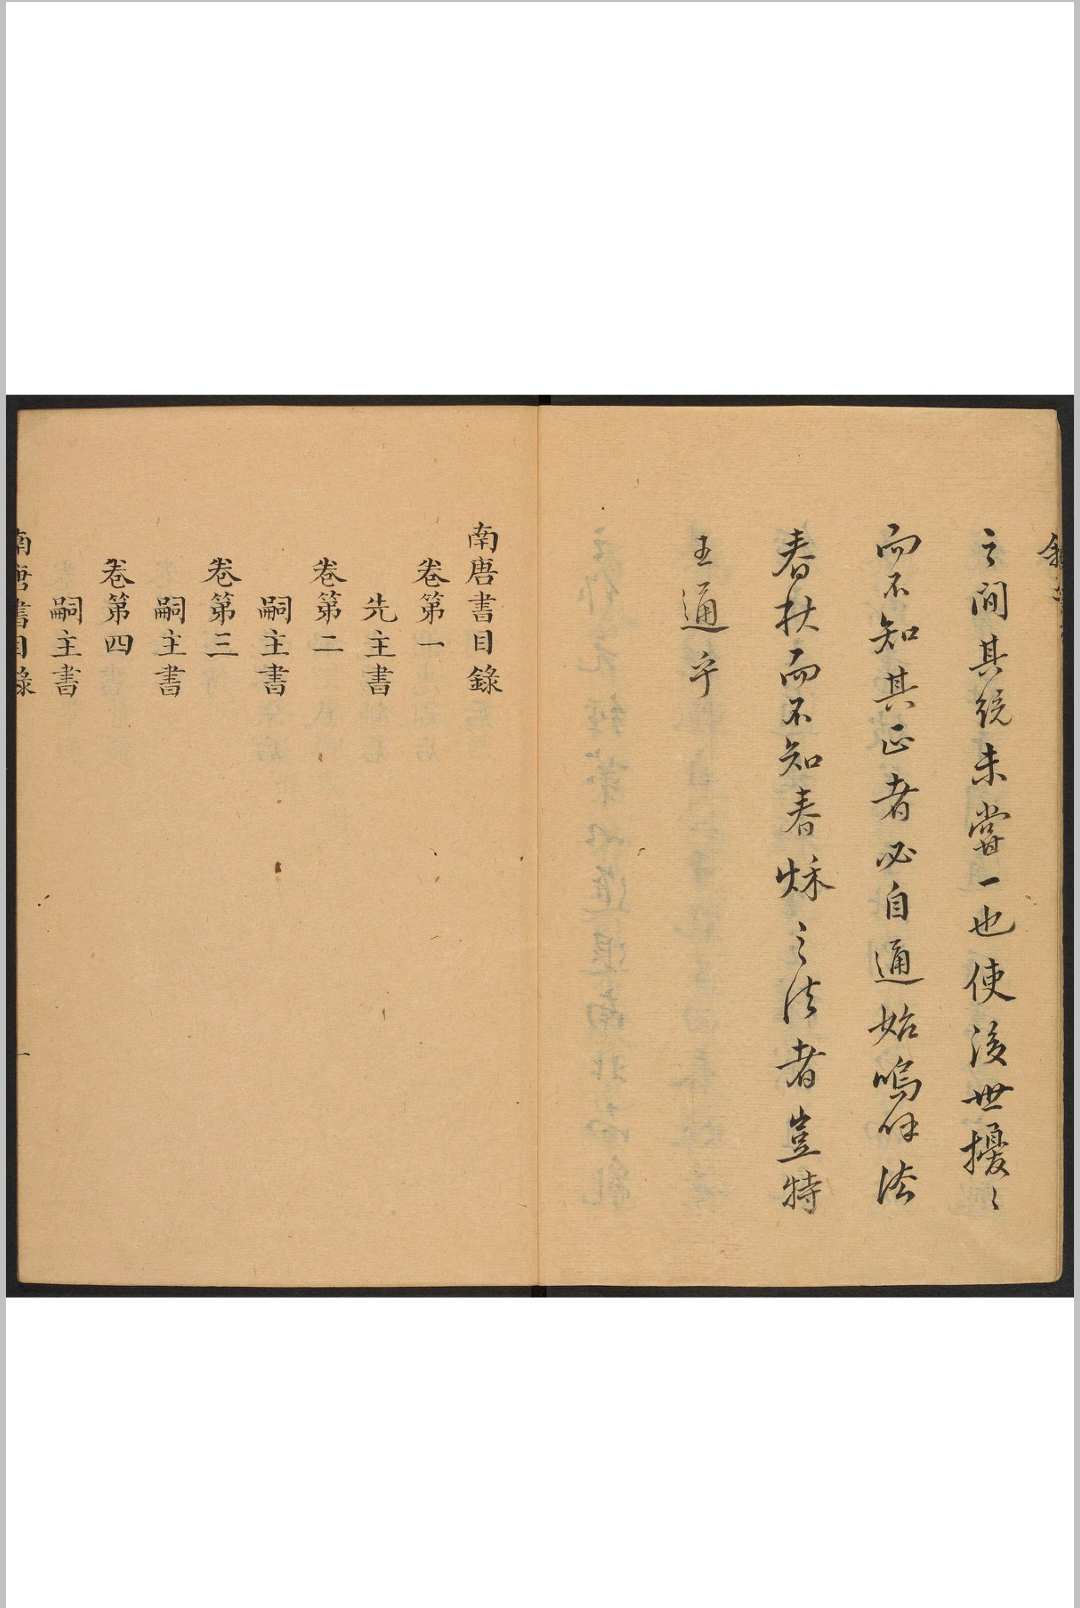 之間其統未嘗一也使後世擾〻
而不知其正者必自通始嗚呼法
春秋而不知春秋之法者豈特
王通乎
南唐書目錄
卷第一
先主書
卷第二
嗣主書
卷第三
嗣主書
卷第四
嗣主書
南唐書目錄
一